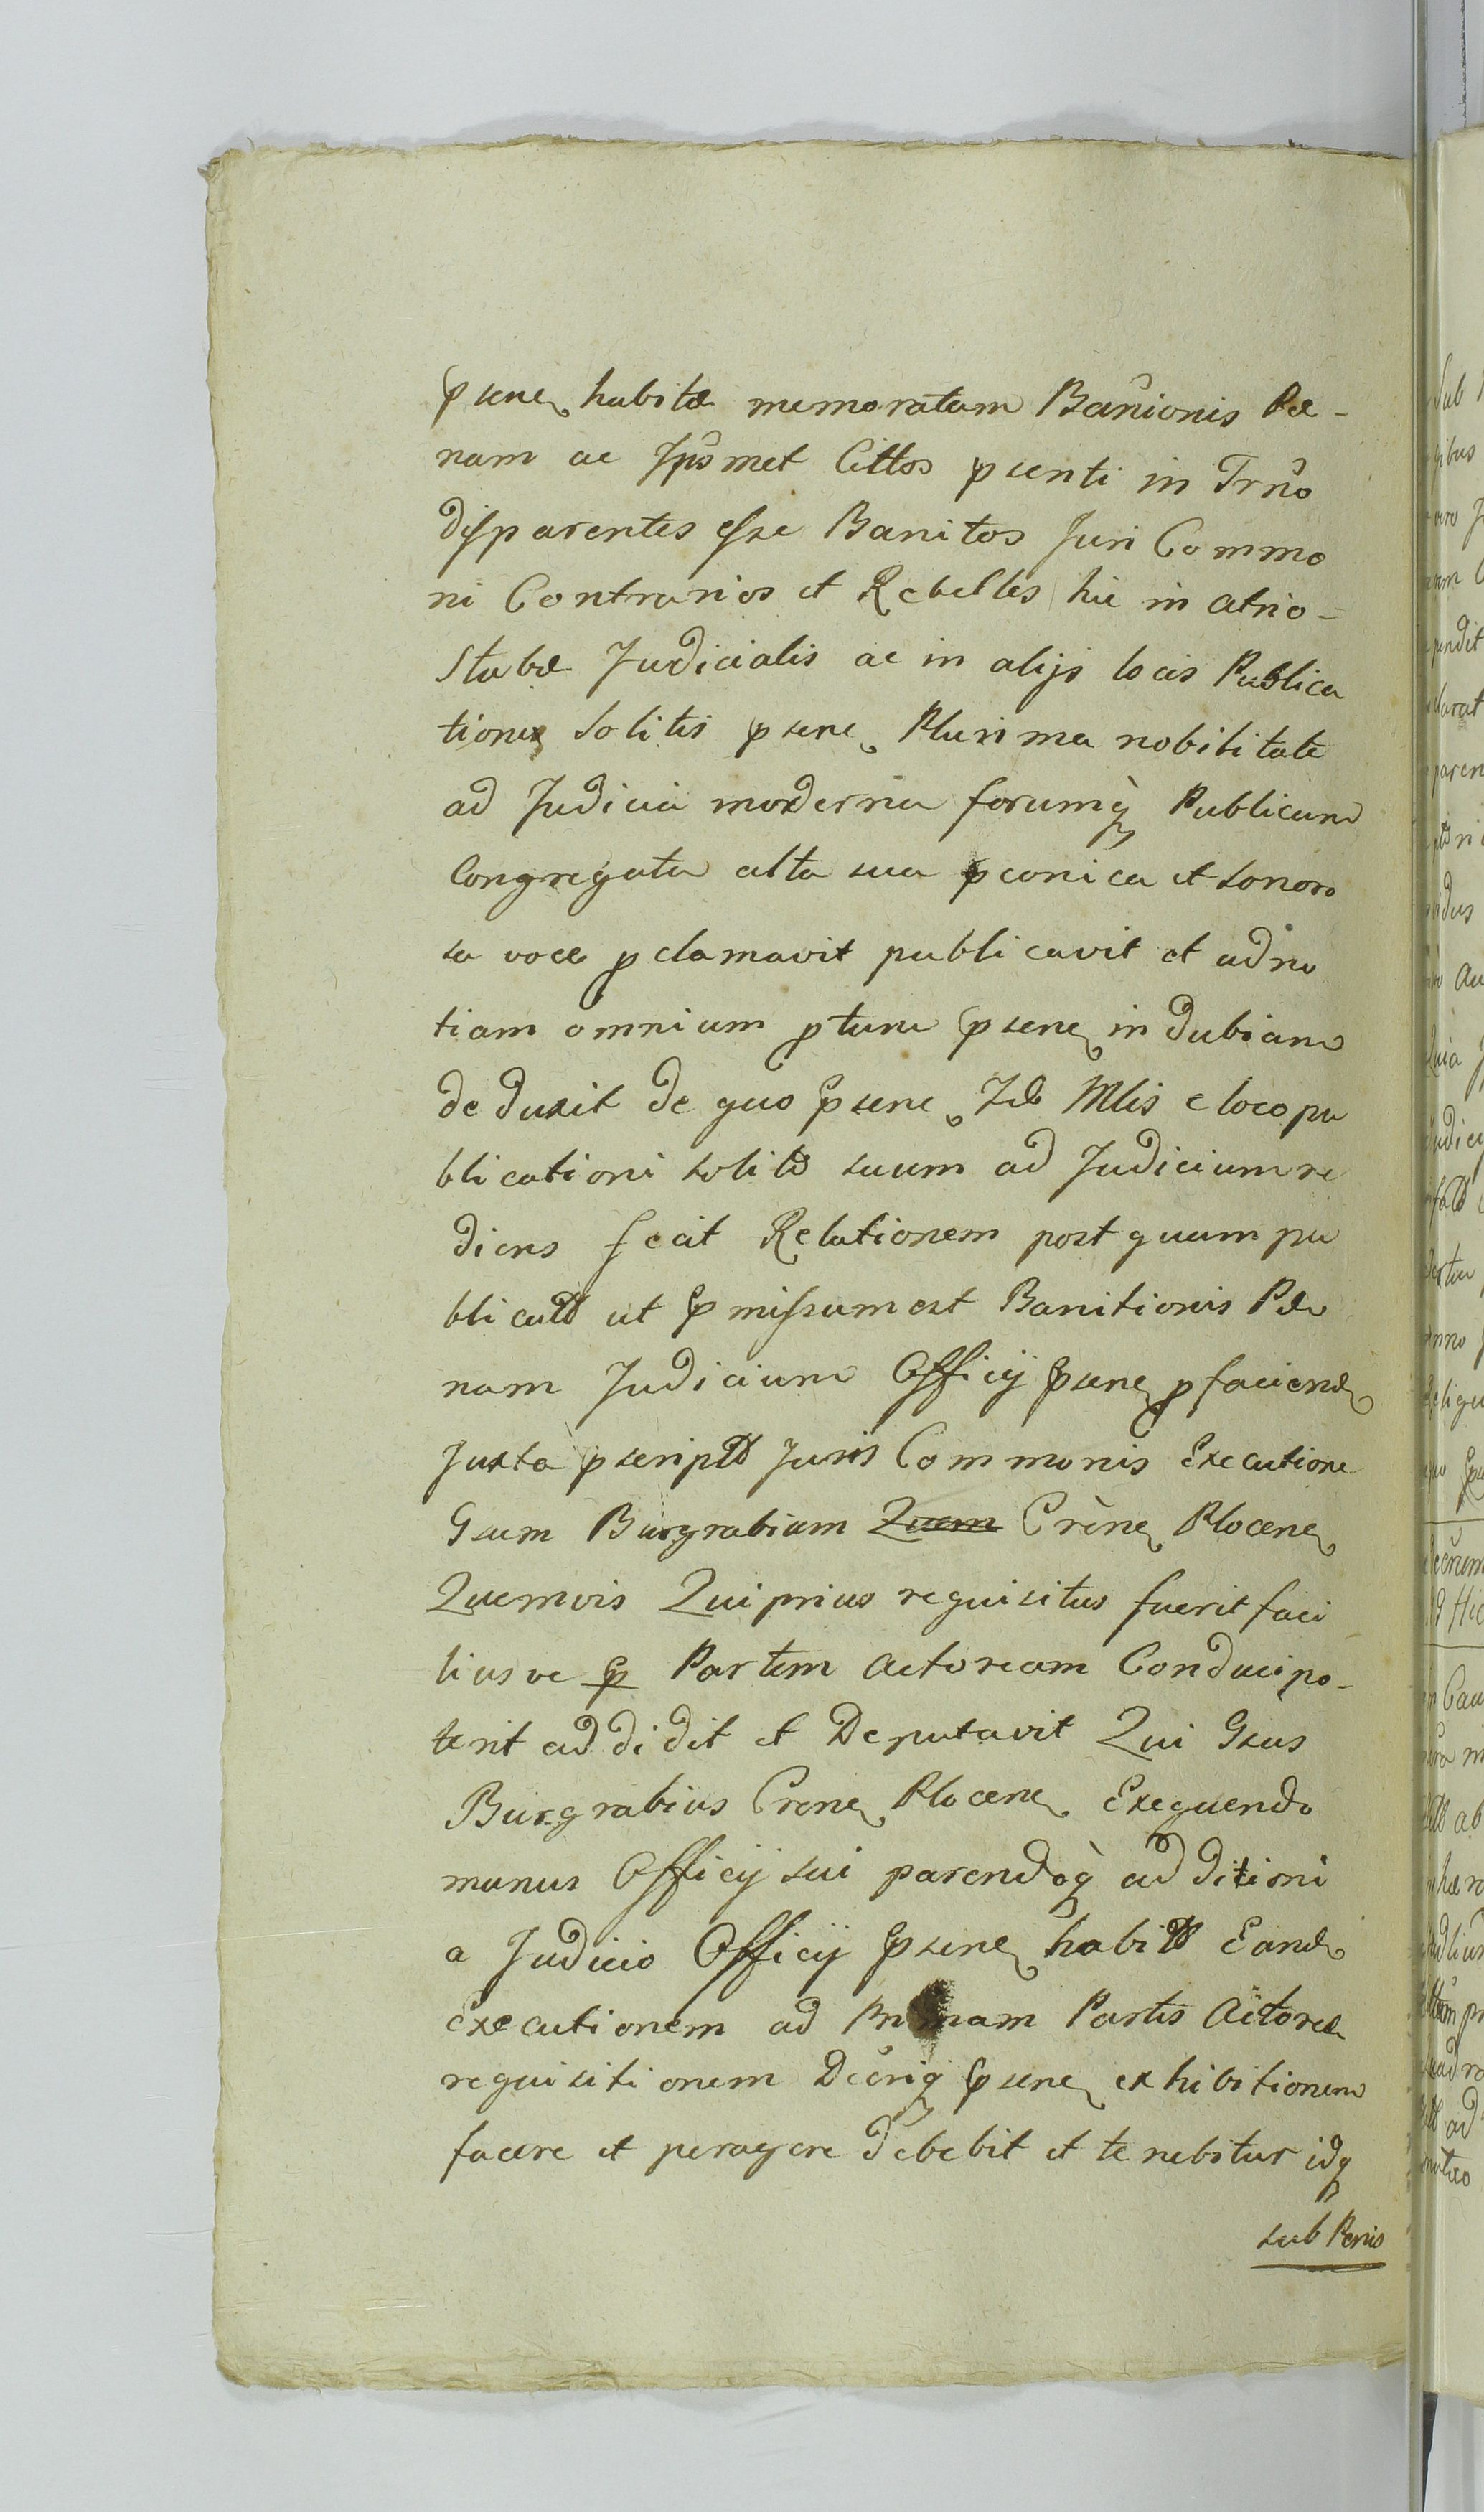 psene habitæ memoratam Banionis Pæ-
nam ac Ipsmet Cittos psenti in Trno
disparentes esse Banitos Juri Commo
ni Contrarios et Rebelles hic in atrio=
Stubæ Judicialis ac in alijs locis Publica
tioni solitis psene Plurima nobilitate
ad Judicia moderna forumq Publicum
Congregata alta sua pconica et sonoro
sa voce pclamavit publicavit et ad no
tiam omnium ptune psene in dubiam
deduxit de quo psene Idε Mlis e loco pu
blicationi solito suum ad Judicium re
diens fecit Relationem post quam pu
blicatã ut pmissum est Banitionis Pæ
nam Judicium Officij psene p faciend
Juxta pscriptã Juris Commonis Executione
Gsum Burgrabium Quem Crene Plocene
Quemvis Qui prius requisitus fuerit faci
liusve p Partem Actoream Conduci po-
terit addidit et Deputavit Qui Gsus
Burgrabius Crene Plocene Exequendo
munus Officij sui parendoq additioni
a Judicio Officij psene habitã Eandε
Executionem ad Primam Partis Actoreæ
requisitionem Decriq psene exhibitionem
facere et peragere debebit et tenebitur idq
sub Penis